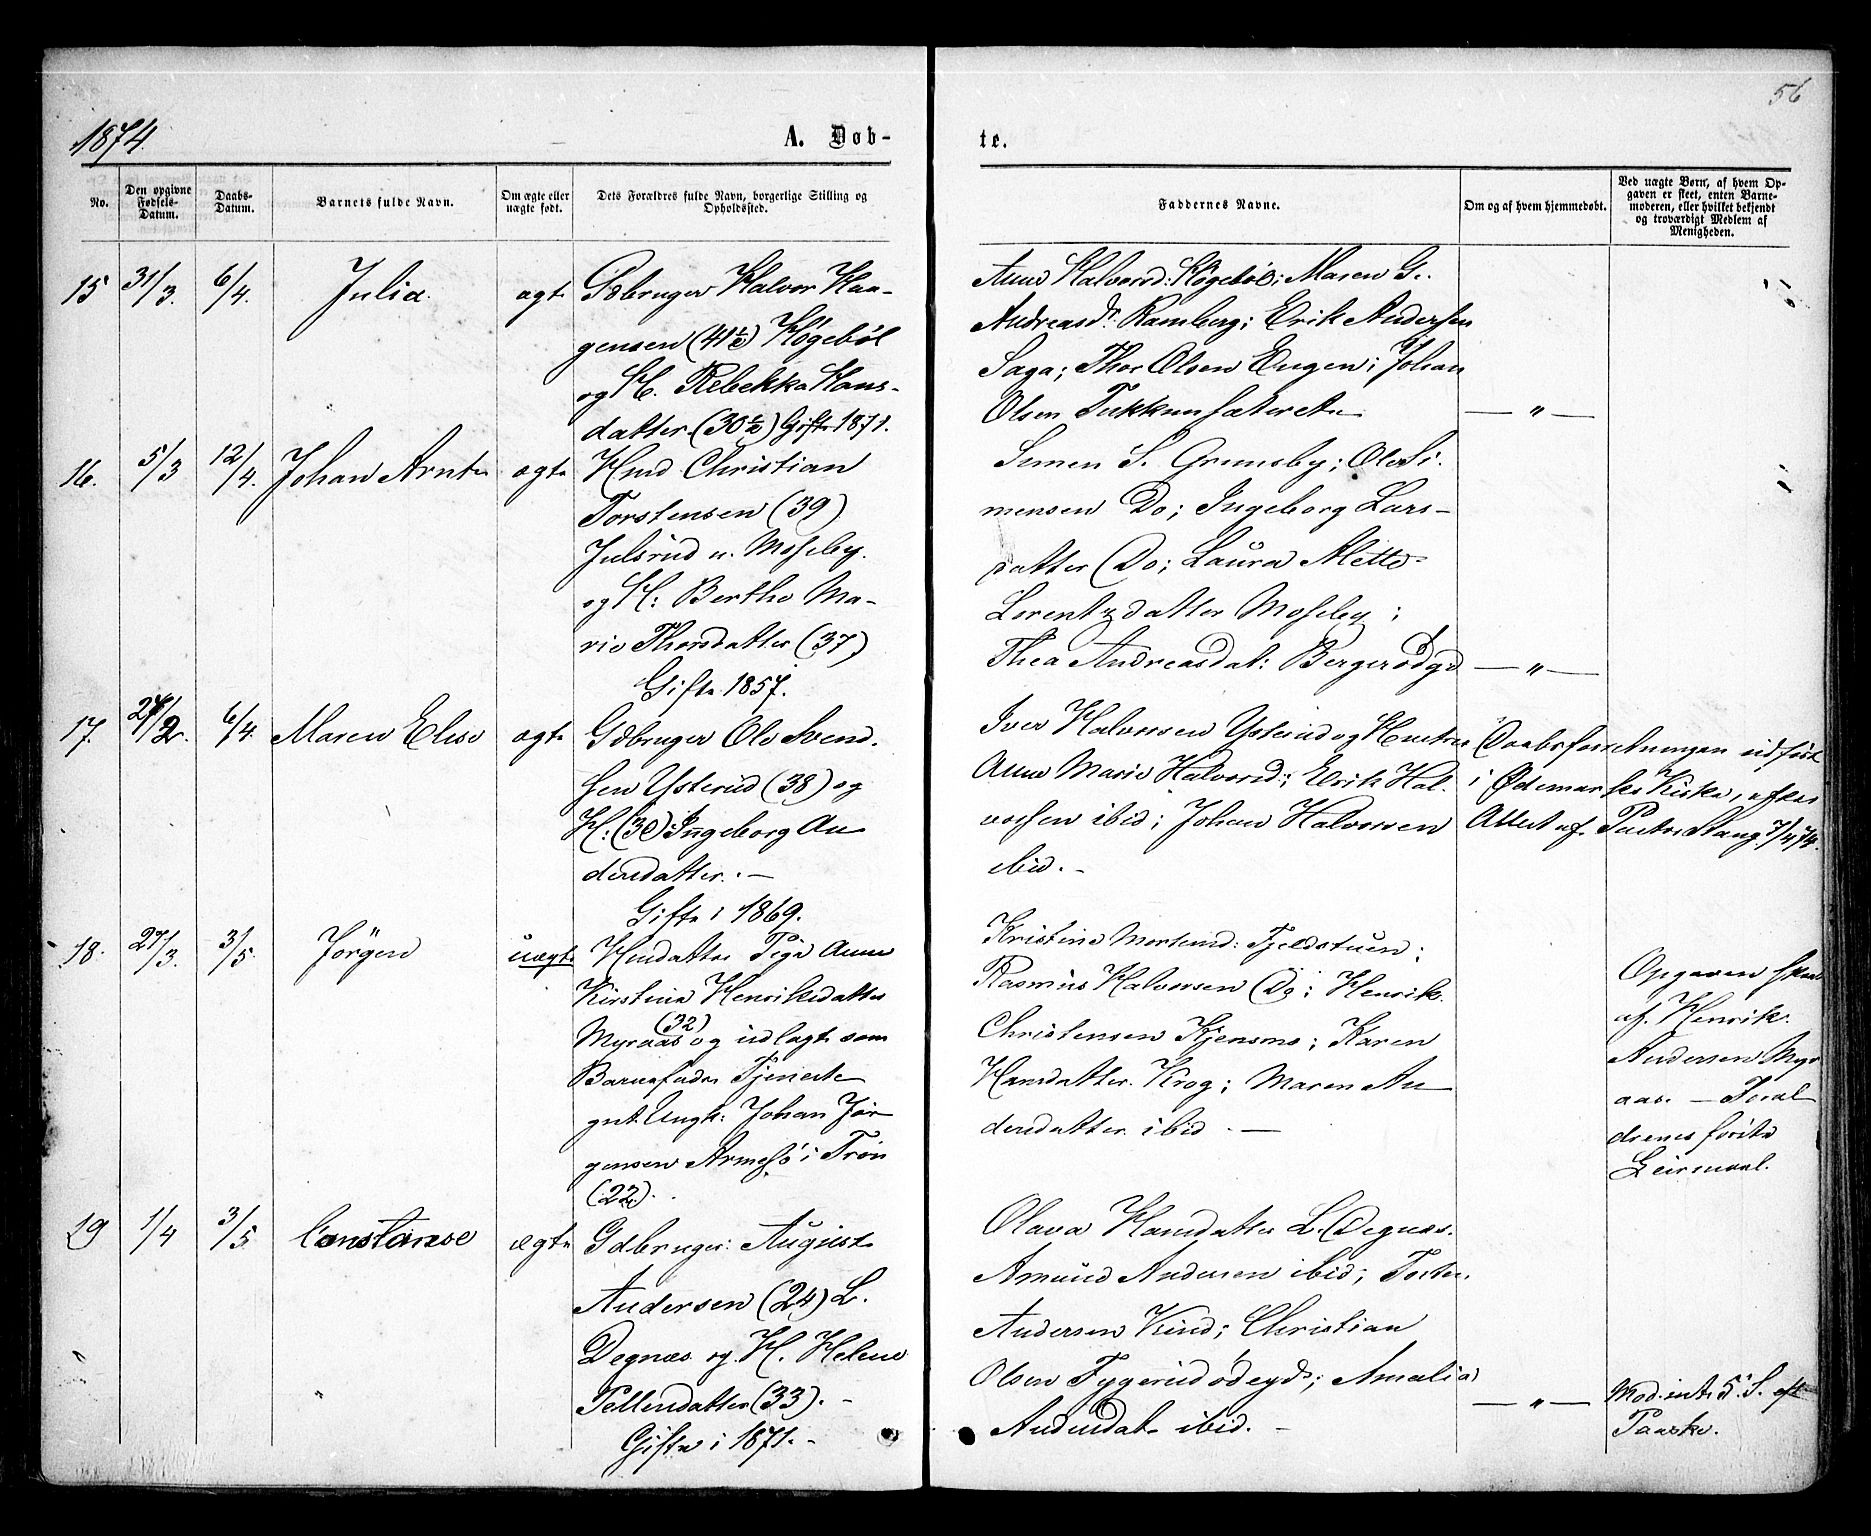 56
1874.
A. Døb-
te.
No.
Den opgivne Fødsels-Datum.
Daabs-Datum.
Barnets fulde Navn.
Om ægte eller uægte født.
Dets Forældres fulde Navn, borgerlige Stilling og Opholdssted.
Faddernes Navne.
Om og af hvem hjemmedøbt.
Ved uægte Børn, af hvem Opgaven er skeet, enten Barnemoderen, eller hvilket bekjendt og troværdigt Medlem af Menigheden.
15 31/3. 6/4. Julia. ægte Gdbruger Halvor Haa-
gensen (41½) Køgebøl
og H. Rebekka Hans-
datter (30½) Gifte 1871.
Anne Halvorsd: Køgebøl; Maren G.
Andreasdr. Ramberg; Erik Andersen
Saga; Thor Olsen Engen; Johan
Olsen
— " —
16. 5/3 12/4. Johan Arnt ægte Hmd Christian
Torstensen (39)
Julsrud u. Moseby.
og H: Berthe Ma-
rie Thorsdatter (37)
Gifte 1857.
Simen S. Grimsby; Ole Si-
mensen Do; Ingeborg Lars-
datter Do; Laura Mette
Lorentzdatter Moseby;
Thea Andreasdat:
— " —
17. 6/4. Maren Elise ægte Gdbruger Ole Svend-
sen Ysterud (38) og
H: (30) Ingeborg An-
dersdatter. —
Gifte i 1869.
Iver Halvorsen Ysterud og Hustru
Anne Marie Halvorsd; Erik Hal-
vorsen ibid; Johan Halvorsen
ibid. -
Daabsforretningen udført
i Ødemarks Kirke, efter
Attest af Pastor Stang 7/4 74.
18. 27/3. 3/5. Jørgen uægte Hmdatter Pige Anne
Kirstine Henriksdatter
(32)
Myraas og udlagt som
Barnefader Tjeneste
gut Ungk: Johan Jør
gensen i Trøn
(22).
Kristine Fjeldstuen;
Rasmus Halvorsen Do; Henrik
Christensen Kjensmo; Karen
Hansdatter Krog; Maren An
dersdatter ibid. —
Opgaven skeet
af Henrik
Andersen Myr
aas. — Foræl
drenes første
Leiermaal.
19 1/4 3/5 Constanse ægte Gdbruger: August
Andersen (24) L.
Degnæs og H. Helene
Pellersdatter (33). -
Gifte i 1871. -
Olava Hansdatter L. Degnæs.
Amund Andersen ibid;
Andersen Kind; Christian
Olsen; Amalia
ibid. -
— " —
5. S. eft
Paaske.